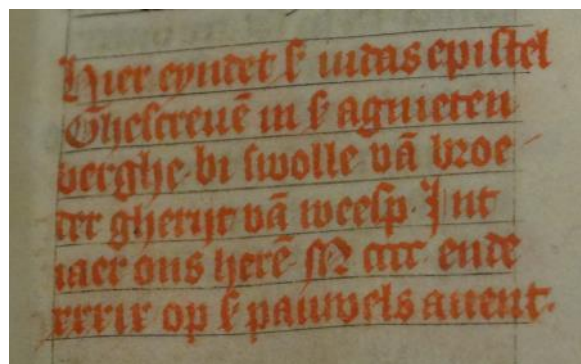 Hier eyndet s̄ iudas epistel
Ghescreuē in s̄ agnieten
berghe bi swolle vā broe
der gherijt vā weesp. Int
iaer ons herē M cccc ende
xxxix op s̄ pauwels auent.